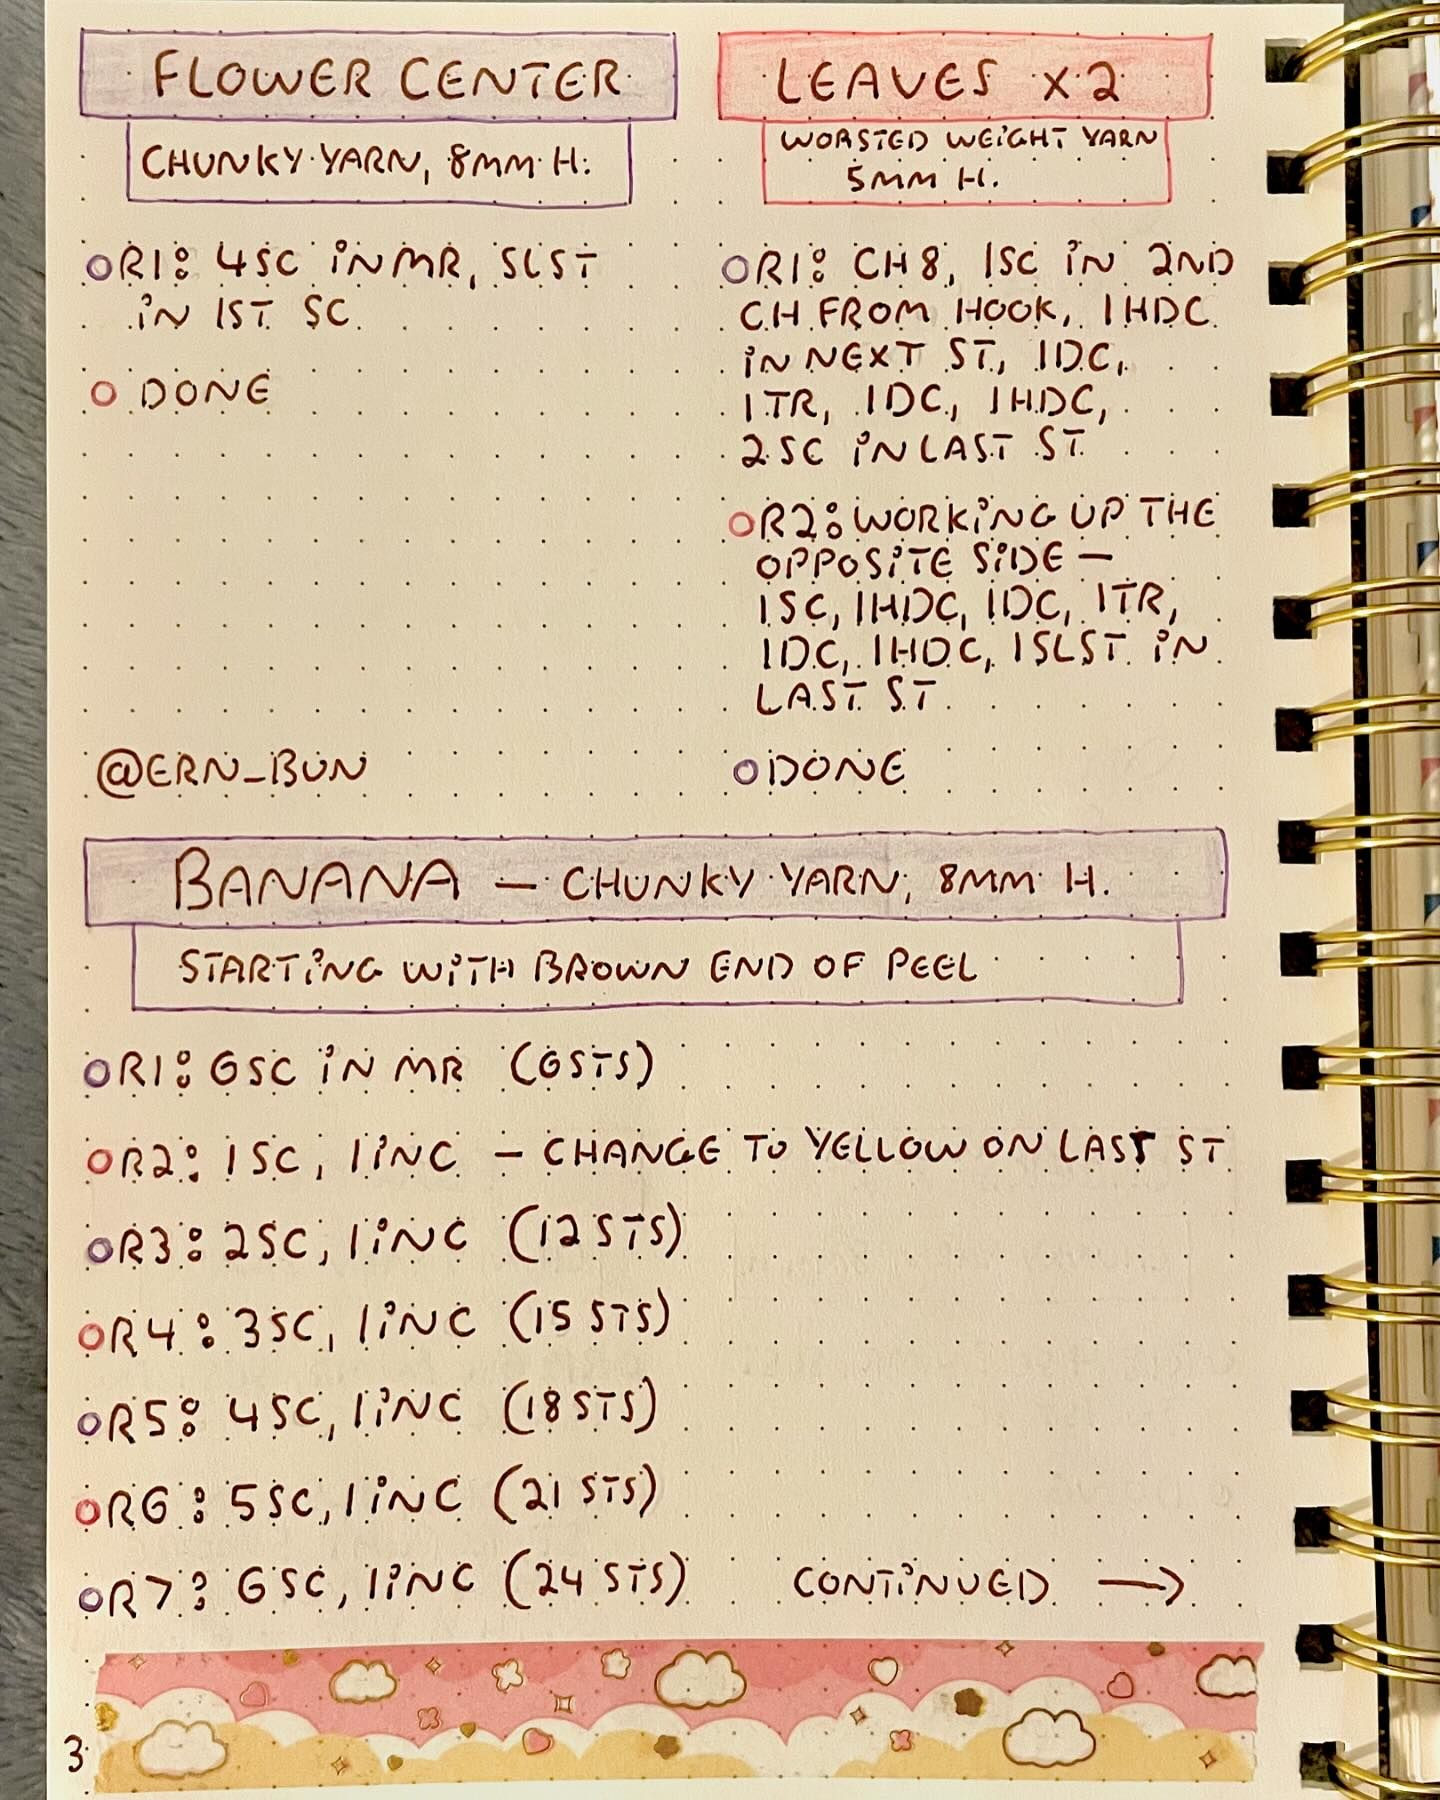 FLOWER CENTER
CHUNKY YARN, 8MM H.
R1: 4SC IN MR, SLST
IN 1ST SC
DONE
@ERN_BUN
LEAVES X2
WORSTED WEIGHT YARN
5MM H.
R1: CH8, 1SC IN 2ND
CH FROM HOOK, 1HDC
IN NEXT ST, 1DC,
1TR, 1DC, 1HDC,
2SC IN LAST ST
R2: WORKING UP THE
OPPOSITE SIDE —
1SC, 1HDC, 1DC, 1TR,
1DC, 1HDC, 1SLST IN
LAST ST
DONE
BANANA — CHUNKY YARN, 8MM H.
STARTING WITH BROWN END OF PEEL
R1: 6SC IN MR (6STS)
R2: 1SC, 1INC — CHANGE TO YELLOW ON LAST ST
R3: 2SC, 1INC (12STS)
R4: 3SC, 1INC (15 STS)
R5: 4SC, 1INC (18STS)
R6: 5SC, 1INC (21 STS)
R7: 6SC, 1INC (24 STS) CONTINUED →
3